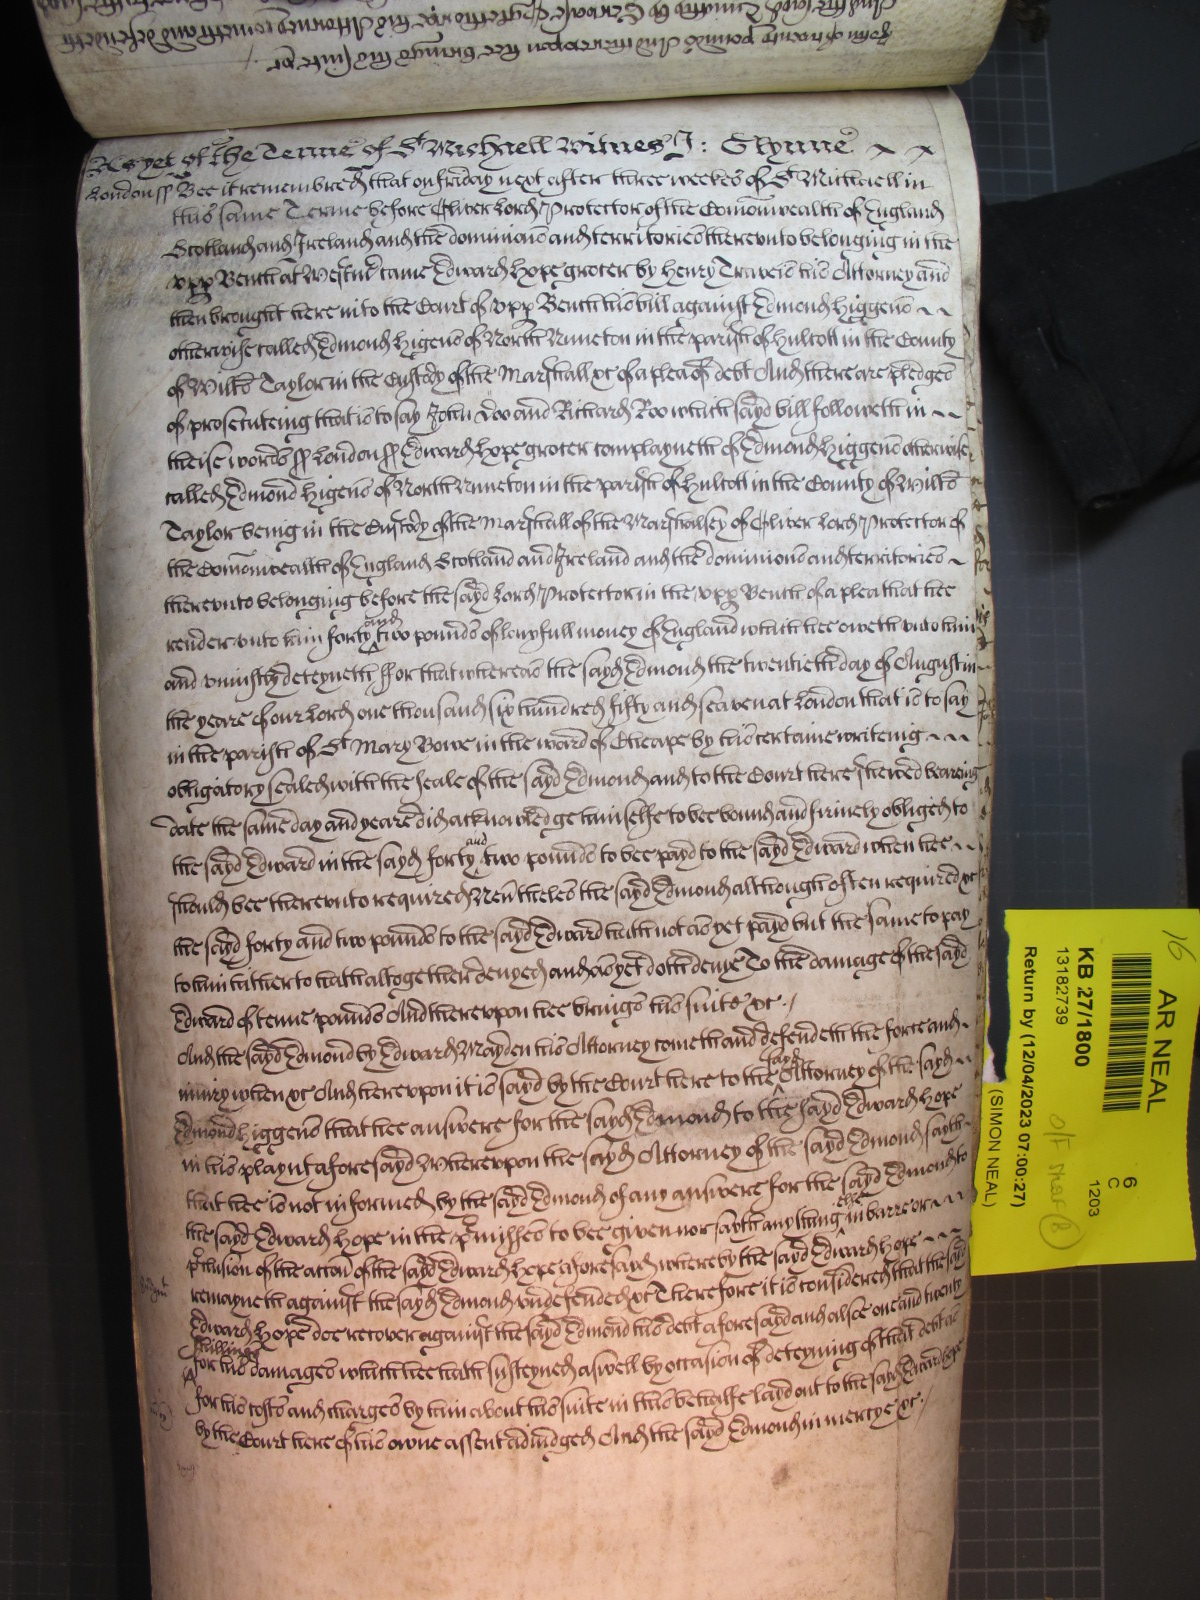 As yet of the Terme of St Michaell Witnes J: Glynne
London ss Bee it remembred that on friday next after three weekes of St Michaell in
this same Terme before Oliver Lord Protector of the Comonwealth of England
Scotland and Ireland and the dominions and territories thereunto belonging in the
upp Bench at Westmr came Edward Hope grocer by Henry Travers his Attorney and
then brought here into the Court of upp Bench his bill against Edmond Higgens
otherwise called Edmond Higens of North Nuneton in the parish of Hulcott in the County
of Wilts Taylor in the Custody of the Marshall &c of a plea of debt And there are pledges
of prosecuteing that is to say John Doo and Richard Roo which sayd bill followeth in
theise words ss London ss Edward Hope grocer complayneth of Edmond Higgens otherwise
called Edmond Higens of North Nuneton in the parish of Hulcott in the County of Wilts
Taylor being in the Custody of the Marshall of the Marshalsey of Oliver Lord Protector of
the Comonwealth of England Scotland and Ireland and the dominions and territories
thereunto belonging before the sayd Lord Protector in the upp Bench of a plea that hee
render unto him forty and two pounds of lawfull money of England which hee oweth unto him
and uniustly deteyneth ffor that whereas the sayd Edmond the twentieth day of August in
the yeare of our Lord one thousand six hundred fifty and seaven at London that is to say
in the parish of St Mary Bowe in the ward of Cheape by his certaine writeing
obligatory sealed with the seale of the sayd Edmond and to the Court here shewed beareing
date the same day and yeare did acknowledge himselfe to bee bound and firmely obliged to
the sayd Edward in the sayd forty and two pounds to bee payd to the sayd Edward when hee
should bee thereunto required Nevertheles the sayd Edmond although often required &c
the sayd forty and two pounds to the sayd Edward hath not as yet payd but the same to pay
to him hitherto hath altogether denyed and as yet doth denie To the damage of the sayd
Edward of tenne pounds And thereupon hee brings his suite &c
And the sayd Edmond by Edward Mayden his Attorney cometh and defendeth the force and
iniury when &c And hereupon it is sayd by the Court here to the sayd Attorney of the sayd
Edmond Higgens that hee answere for the sayd Edmond to the sayd Edward Hope
in his playnt aforesayd Whereupon the sayd Attorney of the sayd Edmond sayth
that hee is not informed by the sayd Edmond of any answere for the sayd Edmond to
the sayd Edward Hope in the pmisses to bee given nor sayth any thing else in barre or
pclusion of the accon of the sayd Edward Hope aforesayd whereby the sayd Edward Hope
remayneth against the sayd Edmond undefended &c Therefore it is considered that the sayd
Edward Hope doe recover against the sayd Edmond his debt aforesayd and alsoe one and twenty
shillings for his damages which hee hath susteyned aswell by occasion of deteyning of that debt as
for his costs and charges by him about his suite in this behalfe layd out to the sayd Edward Hope
by the Court here of his owne assent adiudged And the sayd Edmond in mercye &c
AR NEAL
16
KB 27/1800
13182739
Return by (12/04/2023 07:00:27)
(SIMON NEAL)
6
C
1203